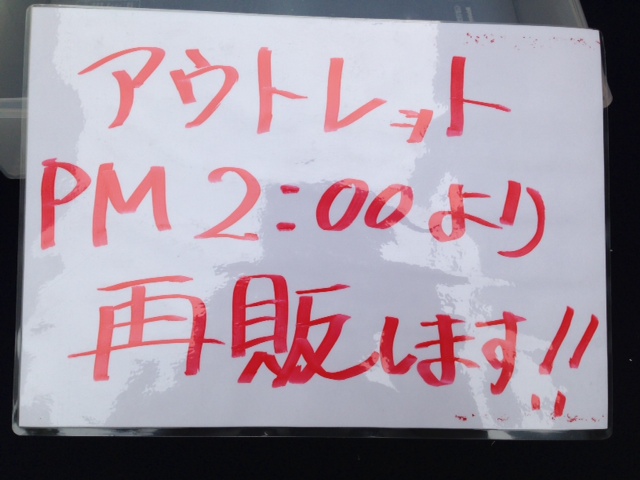 アウトレット
PM 2:00より
再販します!!